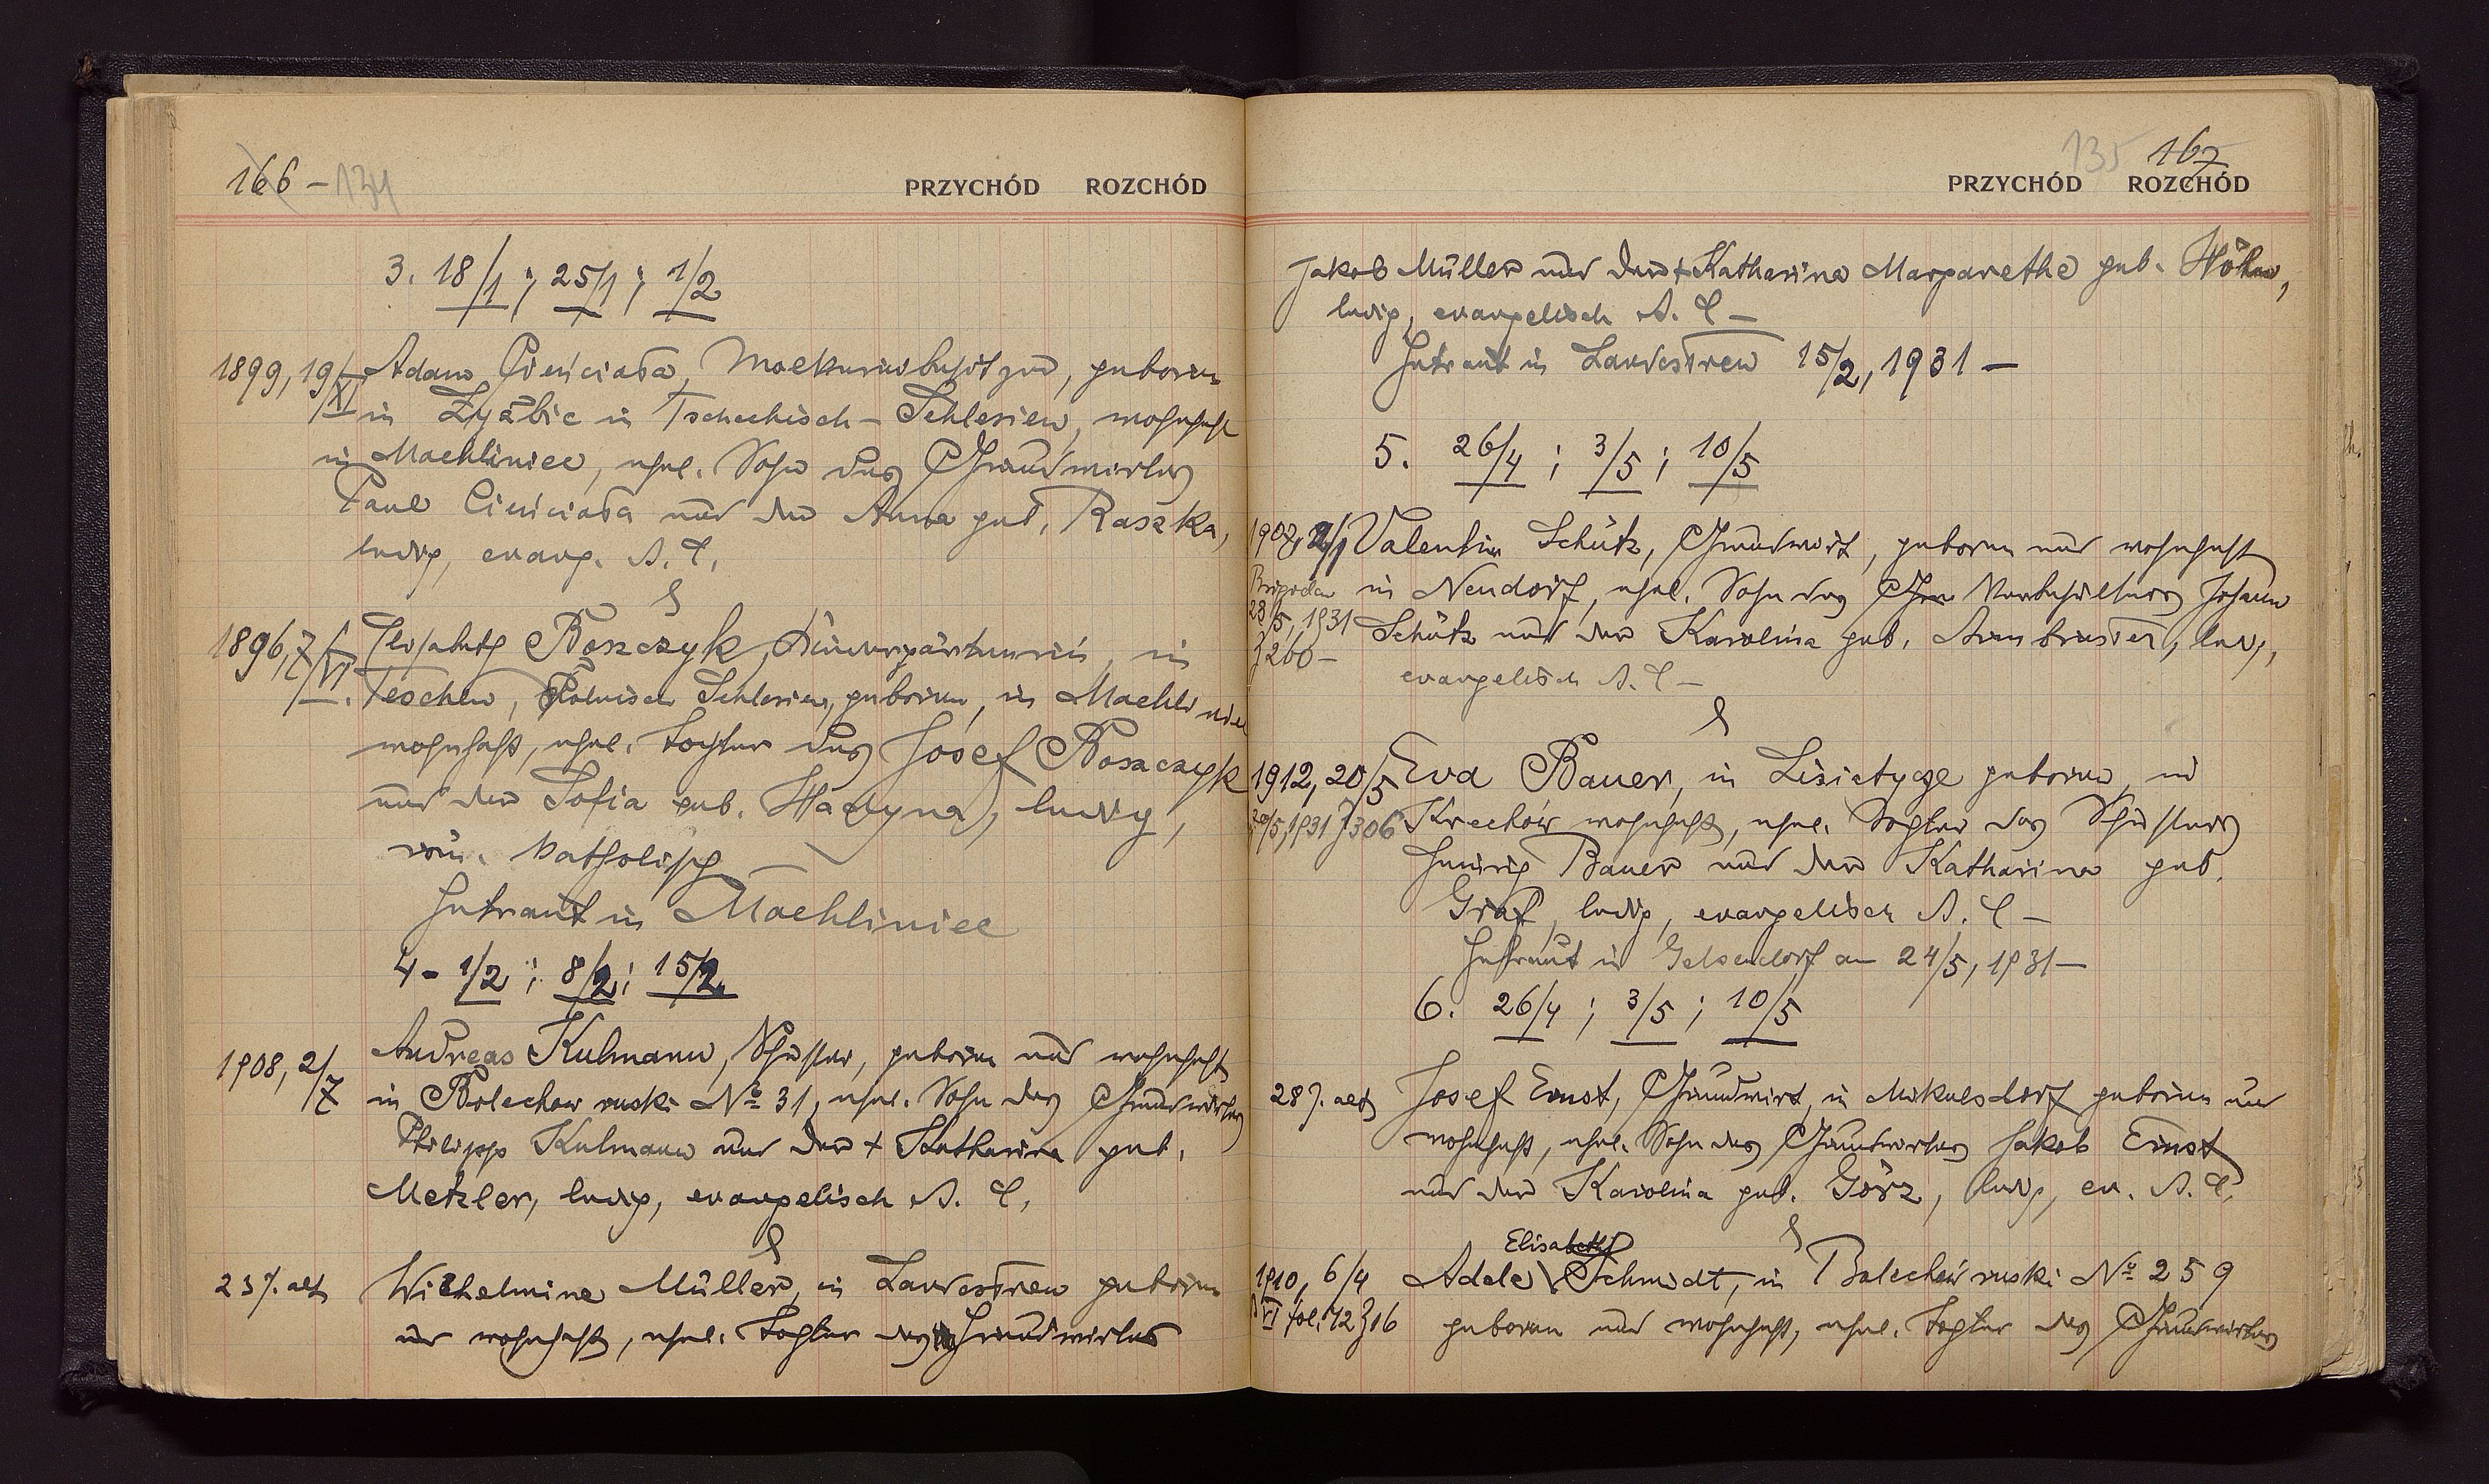 166 – 134
PRZYCHÓD ROZCHÓD
3. 18/1 ; 25/1 ; 1/2
1899, 19/XI Adam Cieńciała, geboren
in in Tschechisch – Schlesien, wohnhaft
in Machliniec, ehel. Sohn des Grundwirtes
Paul Cieńciała und der Anna geb. Raszka,
ledig, evang. A. C.
&
1896, 7/VI. Elisabeth Boszczyk, Kindergärtnerin, in
Teschen, Polnisch Schlesien, geboren, in Machliniec
wohnhaft, ehel. Tochter des Josef Boszczyk
und der Sofia geb. ledig,
röm. katholisch –
Getraut in Machliniec
4 – 1/2 ; 8/2 ; 15/2
1908, 2/7 Andreas Kulmann, Schuster, geboren und wohnhaft
in Bolechow ruski No 31, ehel. Sohn des Grundwirtes
Philipp Kulmann und der + Katharina geb.
Metzler, ledig, evangelisch A. C.
&
23 J. alt Wilhelmine Müller, in Landestreu geboren
und wohnhaft, ehel. Tochter des Grundwirtes
135 167
PRZYCHÓD ROZCHÓD
Jakob Müller und der + Katharina Margarethe geb. Höhn,
ledig, evangelisch A. C –
Getraut in Landestreu 15/2, 1931 –
5. 26/4 ; 3/5 ; 10/5
1907, 2/1 Valentin Schütz, Grundwirt, geboren und wohnhaft
Brigidau in Neudorf, ehel. Sohn des Vorbehaltners Johann
28/5, 1931 Schütz und der Karolina geb. Armbruster, led.,
J 260 –
evangelisch A. C –
&
1912, 20/5 Eva Bauer, in Lisiatycze geboren, in
20/5, 1931 J 306 Krechów wohnhaft, ehel. Tochter des Schusters
Heinrich Bauer und der Katharina geb.
Graf, ledig, evangelisch A. C –
Getraut in Gelsendorf am 24/5, 1931 –
6. 26/4 ; 3/5 ; 10/5
28 J. alt Josef Ernst, Grundwirt, in Mikulsdorf geboren und
wohnhaft, ehel. Sohn des Grundwirtes Jakob Ernst
und der Karolina geb. Görz, ledig, ev. A. C.
&
Elisabeth
1910, 6/4 Adele Schmidt, in Bolechów ruski No 259
VI fol. 12 J 16 geboren und wohnhaft, ehel. Tochter des Grundwirtes